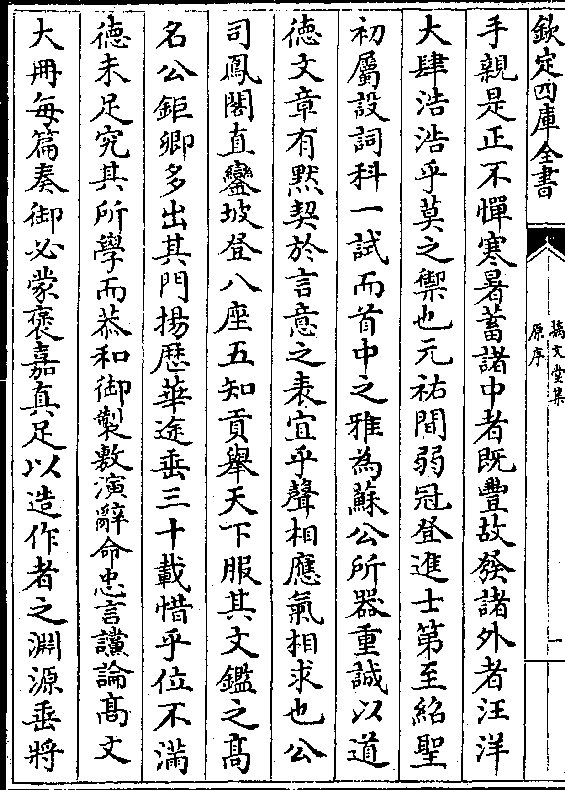 欽定四庫全書
摛文堂集
原序
一
手親是正不憚寒暑蓄諸中者既豐故發諸外者汪洋
大肆浩浩乎莫之禦也元祐間弱冠登進士第至紹聖
初屬設詞科一試而首中之雅為蘇公所器重誠以道
徳文章有黙契於言意之表宜乎聲相應氣相求也公
司鳳閣直鑾坡登八座五知貢舉天下服其文鑑之高
名公鉅卿多出其門揚歴華途垂三十載惜乎位不滿
徳未足究其所學而恭和御製敷演辭命忠言讜論髙文
大冊每篇奏御必蒙褒嘉真足以造作者之淵源垂將